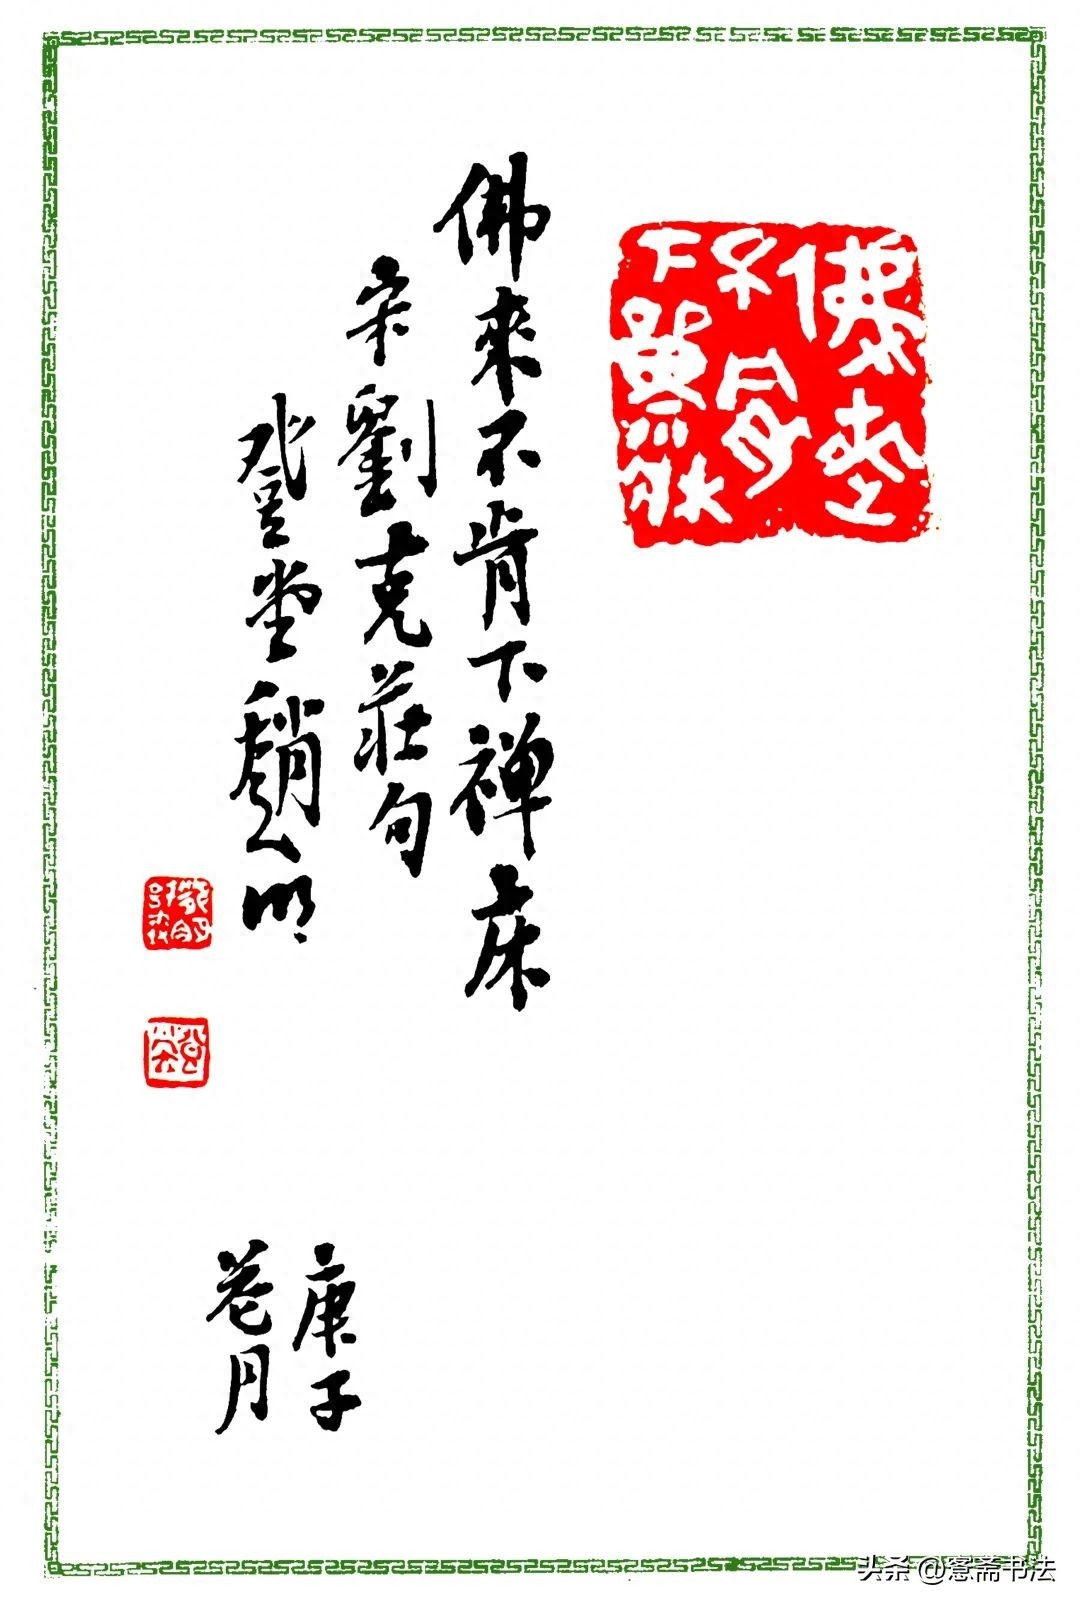 佛來不肯
下禪床
佛來不肯下禅床
宋劉克莊句
登堂趙明
庚子
月
头条 @愙斋书法